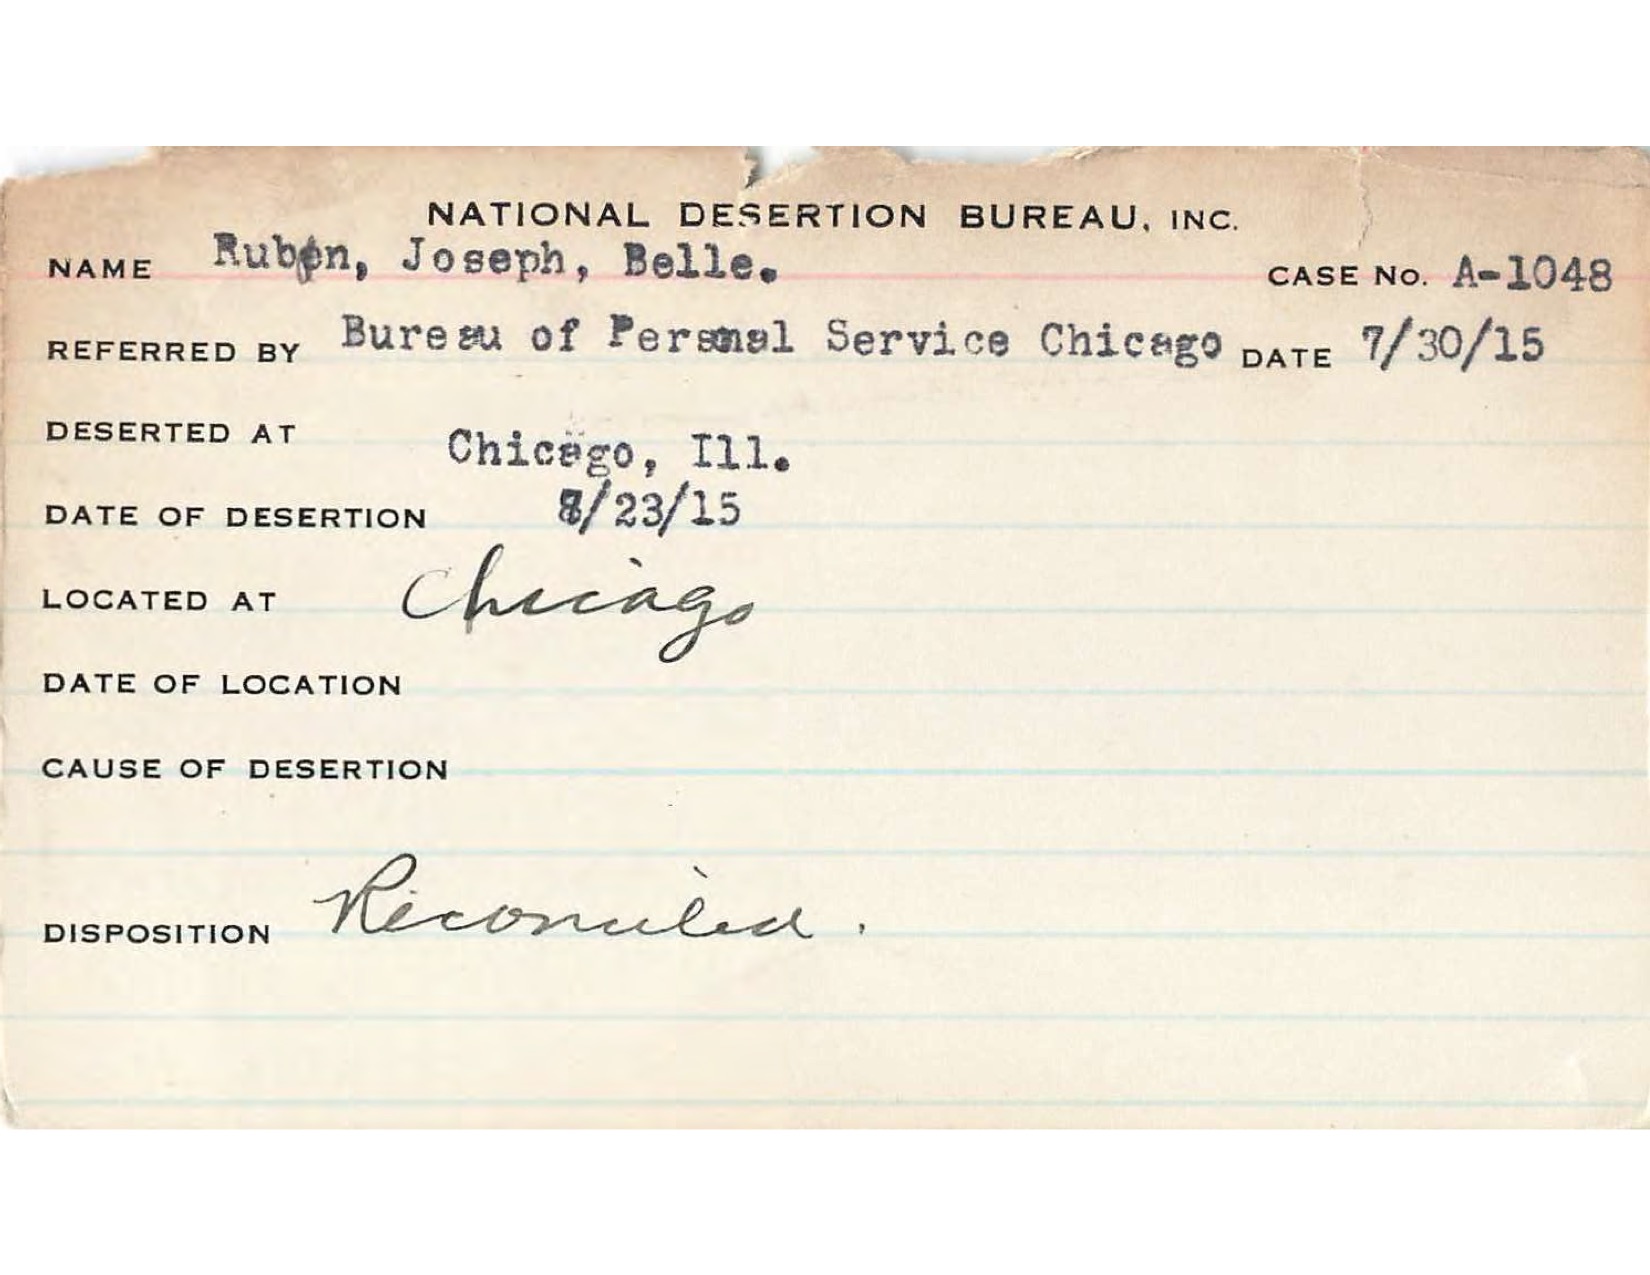 NATIONAL DESERTION BUREAU, INC.
NAME Ruben, Joseph, Belle. CASE No. A-1048
REFERRED BY Bureau of Personal Service Chicago DATE 7/30/15
DESERTED AT Chicago, Ill.
DATE OF DESERTION /23/15
LOCATED AT Chicago
DATE OF LOCATION
CAUSE OF DESERTION
DISPOSITION Reconciled.